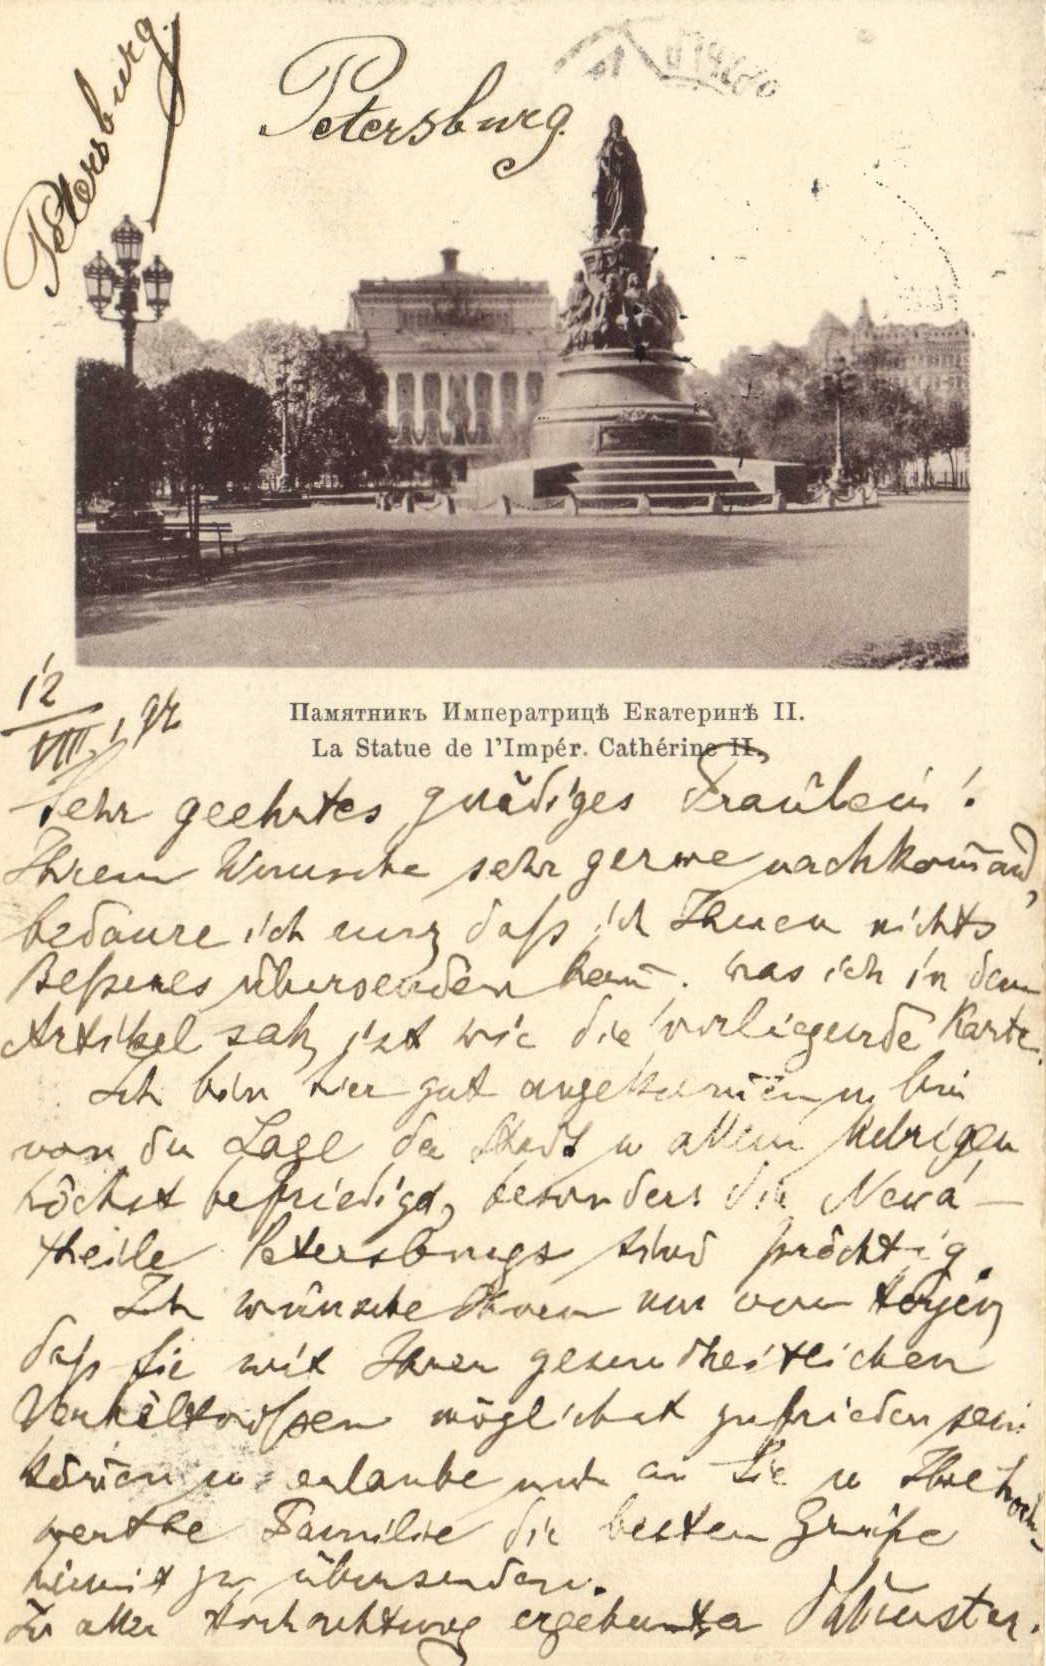 Petersburg.
Petersburg.
Памятникъ Императрицѣ Екатеринѣ II.
La Statue de l'Impér. Cathérine II.
12
VIII.
Sehr geehrtes gnädiges Fräulein!
Ihrem Wunsche sehr gerne nachkom̅end,
bedaure ich nur, daß ich Ihnen nichts
Beßeres übersenden kan̅. Was ich in dem
Artikel sah, ist wie die vorliegende Karte.
Ich bin hier gut angekom̅en u. bin
von der Lage der Stadt u allem Uebrigen
höchst befriedigt, besonders die Newa-
theile Petersburgs sind prächtig.
Ich wünsche Ihnen nur vom
daß Sie mit Ihren gesundheitlichen
Verhältnißen möglichst zufrieden sein
kön̅en u. erlaube mir an Sie u Ihre hoch-
werthe Familie die besten Grüße
hiemit zu übersenden.
In aller Hochachtung ergebenster